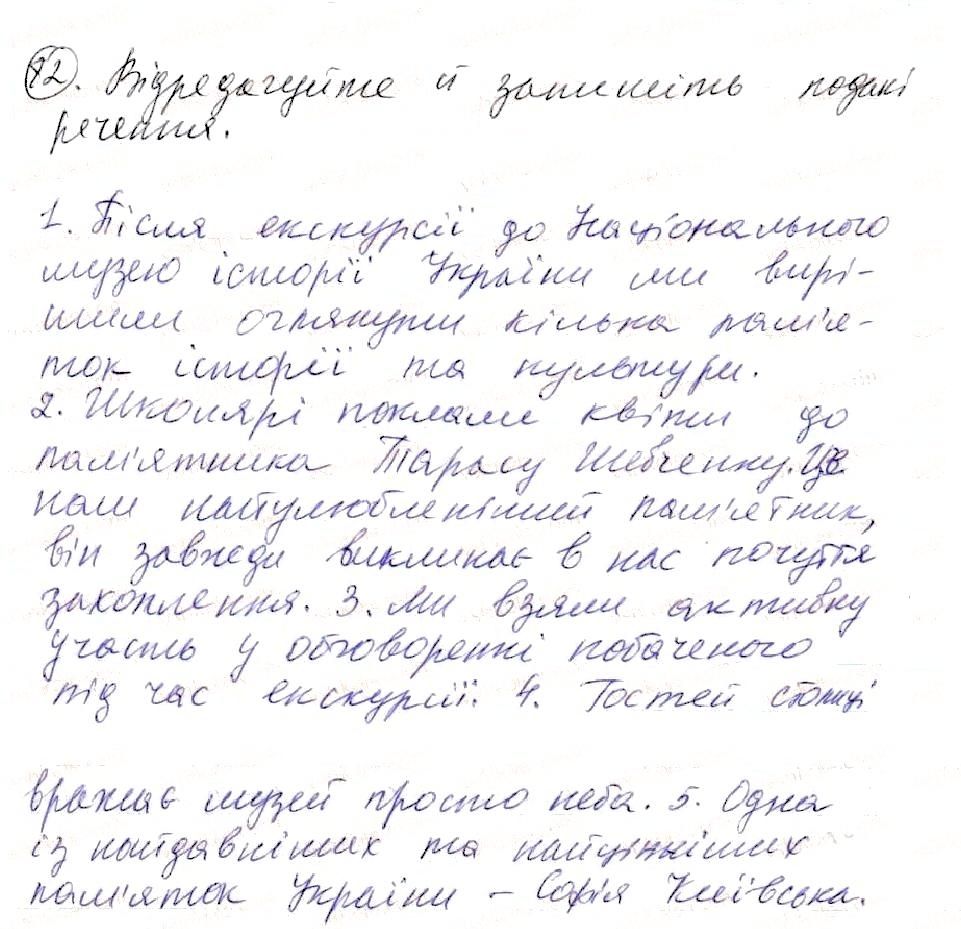 82. Відредагуйте й запишіть подані
речення.
1. Після екскурсії до Національного
музею історії України ми вирі-
шили оглянути кілька пам'я-
ток історії та культури.
2. Школярі поклали квіти до
пам'ятника Тарасу Шевченку. Це
наш найулюбленіший пам'ятник,
він завжди викликає в нас почуття
захоплення. 3. Ми взяли активну
участь у обговоренні побаченого
під час екскурсії. 4. Гостей столиці
вражає музей просто неба. 5. Одна
із найдавніших та найцінніших
пам'яток України – Софія Київська.